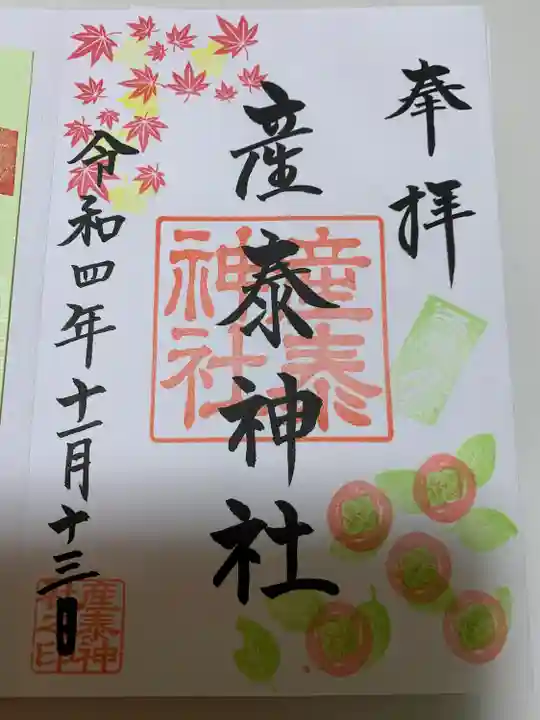 奉拝
産泰神社
産泰
神社
令和四年十一月十三日
産泰神
社之印